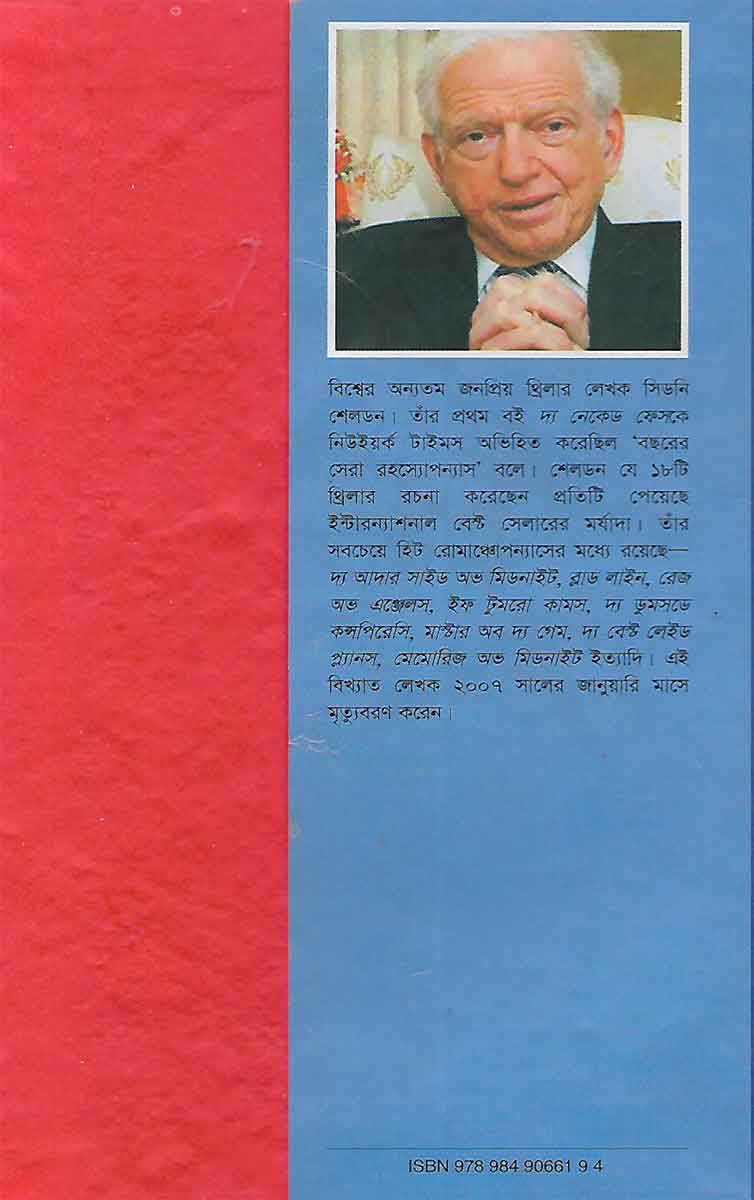 বিশ্বের অন্যতম জনপ্রিয় থ্রিলার লেখক সিডনি
শেলডন। তাঁর প্রথম বই দ্য নেকেড ফেসকে
নিউইয়র্ক টাইমস অভিহিত করেছিল ‘বছরের
সেরা রহস্যোপন্যাস’ বলে। শেলডন যে ১৮টি
থ্রিলার রচনা করেছেন প্রতিটি পেয়েছে
ইন্টারন্যাশনাল বেস্ট সেলারের মর্যাদা। তাঁর
সবচেয়ে হিট রোমাঞ্চোপন্যাসের মধ্যে রয়েছে—
দ্য আদার সাইড অভ মিডনাইট, ব্লাড লাইন, রেজ
অভ এঞ্জেলস, ইফ টুমরো কামস, দ্য ডুমসডে
কন্সপিরেসি, মাস্টার অব দ্য গেম, দ্য বেস্ট লেইড
প্ল্যানস, মেমোরিজ অভ মিডনাইট ইত্যাদি। এই
বিখ্যাত লেখক ২০০৭ সালের জানুয়ারি মাসে
মৃত্যুবরণ করেন।
ISBN 978 984 90661 9 4